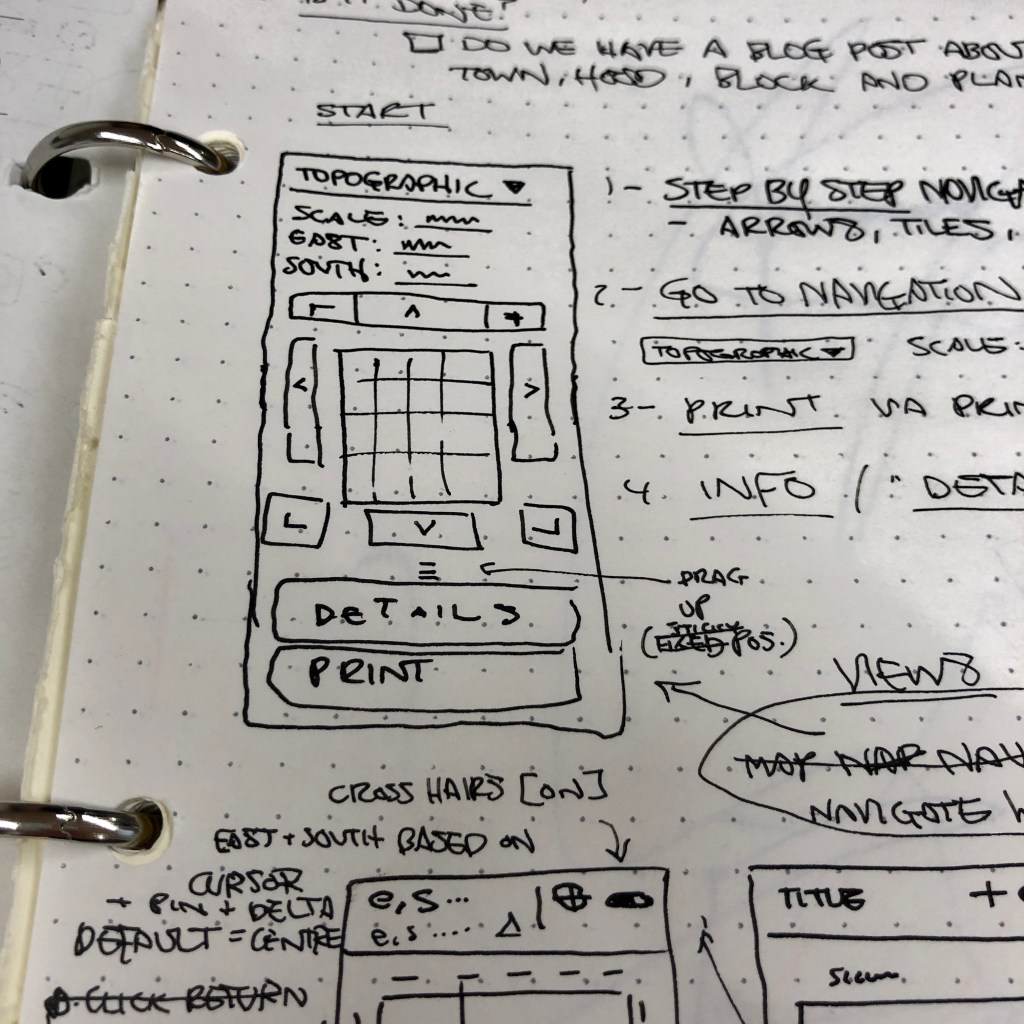 IS IT DONE?
DO WE HAVE A BLOG POST ABOU
TOWN, HOOD, BLOCK AND PLAN
START
TOPOGRAPHIC
SCALE:
EAST:
SOUTH:
DETAILS
PRINT
1- STEP BY STEP NAVIGA
- ARROWS, TILES,
2- GO TO NAVIGATION
TOPOGRAPHIC SCALE:
3- PRINT VIA PRIN
4. INFO / "DETA
DRAG
UP
STICKY
(FIXED POS.)
VIEWS
MAP NAV
NAVIGATE
CROSS HAIRS [ON]
EAST + SOUTH BASED ON
CURSOR
+ PIN + DELTA
DEFAULT = CENTRE
CLICK RETURN
e,s...
e,s.... Δ
TITLE +